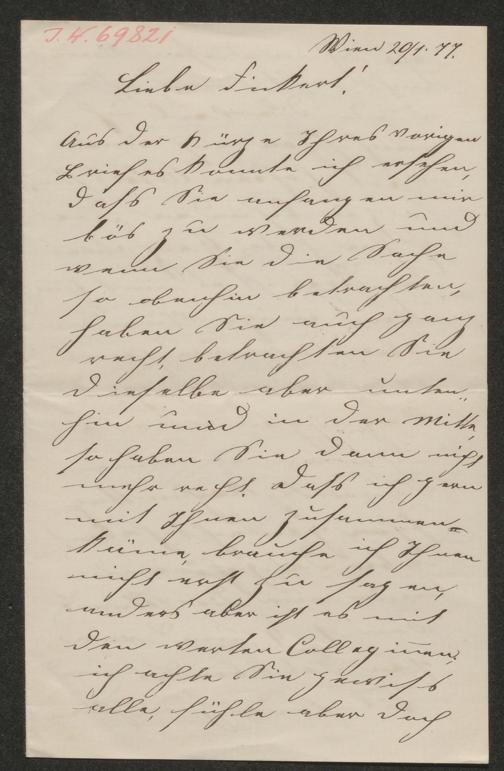 I.N. 69821
Wien 20/1. 77.
Liebe Fickert!
Aus der Kürze Ihres vorigen
Briefes konnte ich ersehen,
daß Sie anfangen mir
bös zu werden und
wenn Sie die Sache
so obenhin betrachten,
haben Sie auch ganz
recht, betrachten Sie
dieselbe aber unten-
hin und in der Mitte,
so haben Sie dann nicht
mehr recht. Daß ich gern
mit Ihnen zusammen=
käme, brauche ich Ihnen
nicht erst zu sagen,
anders aber ist es mit
den werten Colleginnen;
ich achte Sie gewiß
alle, fühle aber doch